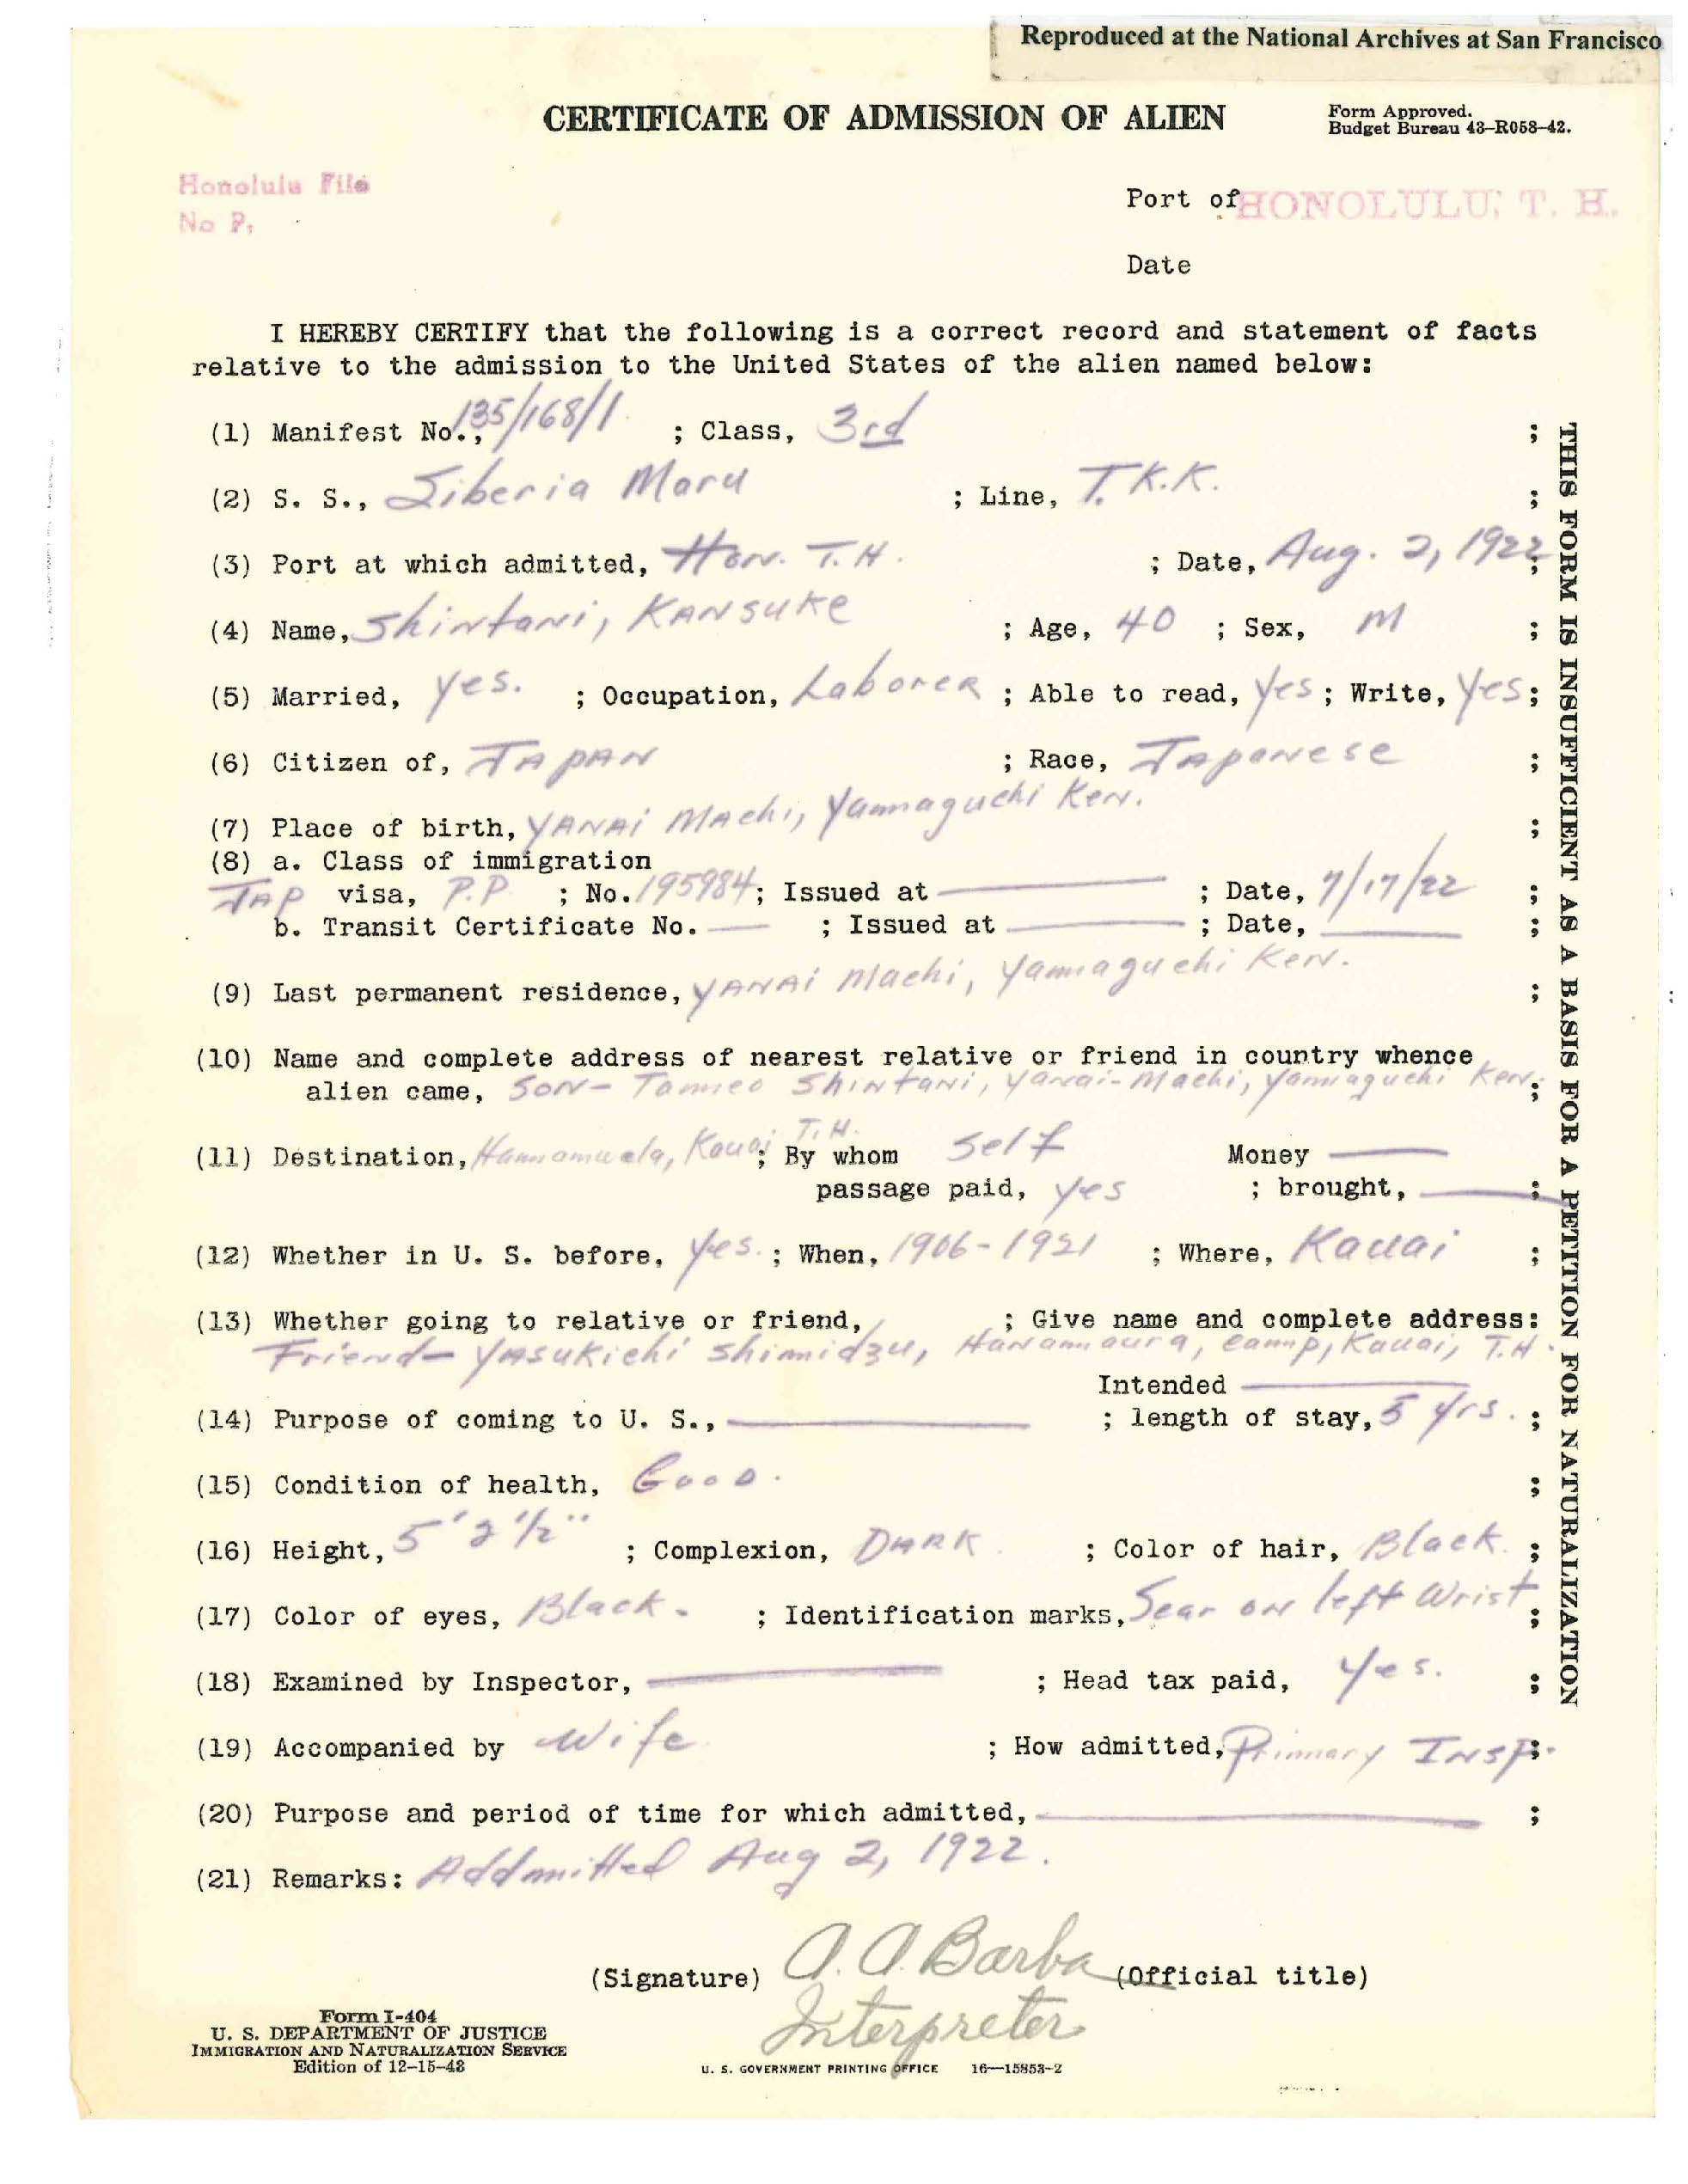 Reproduced at the National Archives at San Francisco
CERTIFICATE OF ADMISSION OF ALIEN
Form Approved.
Budget Bureau 43-R058-42.
Honolulu File
No P.
Port of HONOLULU, T. H.
Date
I HEREBY CERTIFY that the following is a correct record and statement of facts
relative to the admission to the United States of the alien named below:
(1) Manifest No., 135/168/1 ; Class, 3rd ;
(2) S. S., Siberia Maru ; Line, T.K.K. ;
(3) Port at which admitted, Hon. T.H. ; Date, Aug. 2, 1922 ;
(4) Name, Shintani, Kansuke ; Age, 40 ; Sex, M ;
(5) Married, yes. ; Occupation, Laborer ; Able to read, Yes ; Write, Yes ;
(6) Citizen of, Japan ; Race, Japanese ;
(7) Place of birth, Yanai Machi, Yamaguchi Ken. ;
(8) a. Class of immigration
Jap visa, P.P ; No. 195984 ; Issued at ; Date, 7/17/22 ;
b. Transit Certificate No. ; Issued at ; Date, ;
(9) Last permanent residence, Yanai Machi, Yamaguchi Ken. ;
(10) Name and complete address of nearest relative or friend in country whence
alien came, Son- Shintani, Yanai-Machi, Yamaguchi Ken. ;
T.H.
(11) Destination, Kauai ; By whom Self Money
passage paid, yes ; brought, ;
(12) Whether in U. S. before, Yes. ; When, 1906-1921 ; Where, Kauai ;
(13) Whether going to relative or friend, ; Give name and complete address:
Friend- Yasukichi Shimidzu, camp, Kauai, T.H.
Intended
(14) Purpose of coming to U. S., ; length of stay, 5 yrs. ;
(15) Condition of health, Good. ;
(16) Height, 5'2 1/2" ; Complexion, Dark ; Color of hair, Black. ;
(17) Color of eyes, Black. ; Identification marks, Scar on left Wrist ;
(18) Examined by Inspector, ; Head tax paid, Yes. ;
(19) Accompanied by Wife ; How admitted, Primary Insp. ;
(20) Purpose and period of time for which admitted, ;
(21) Remarks: Addmitted Aug 2, 1922.
(Signature) A. A. Barba (Official title)
Interpreter
Form I-404
U. S. DEPARTMENT OF JUSTICE
IMMIGRATION AND NATURALIZATION SERVICE
Edition of 12-15-43
U. S. GOVERNMENT PRINTING OFFICE 16—15853-2
THIS FORM IS INSUFFICIENT AS A BASIS FOR A PETITION FOR NATURALIZATION